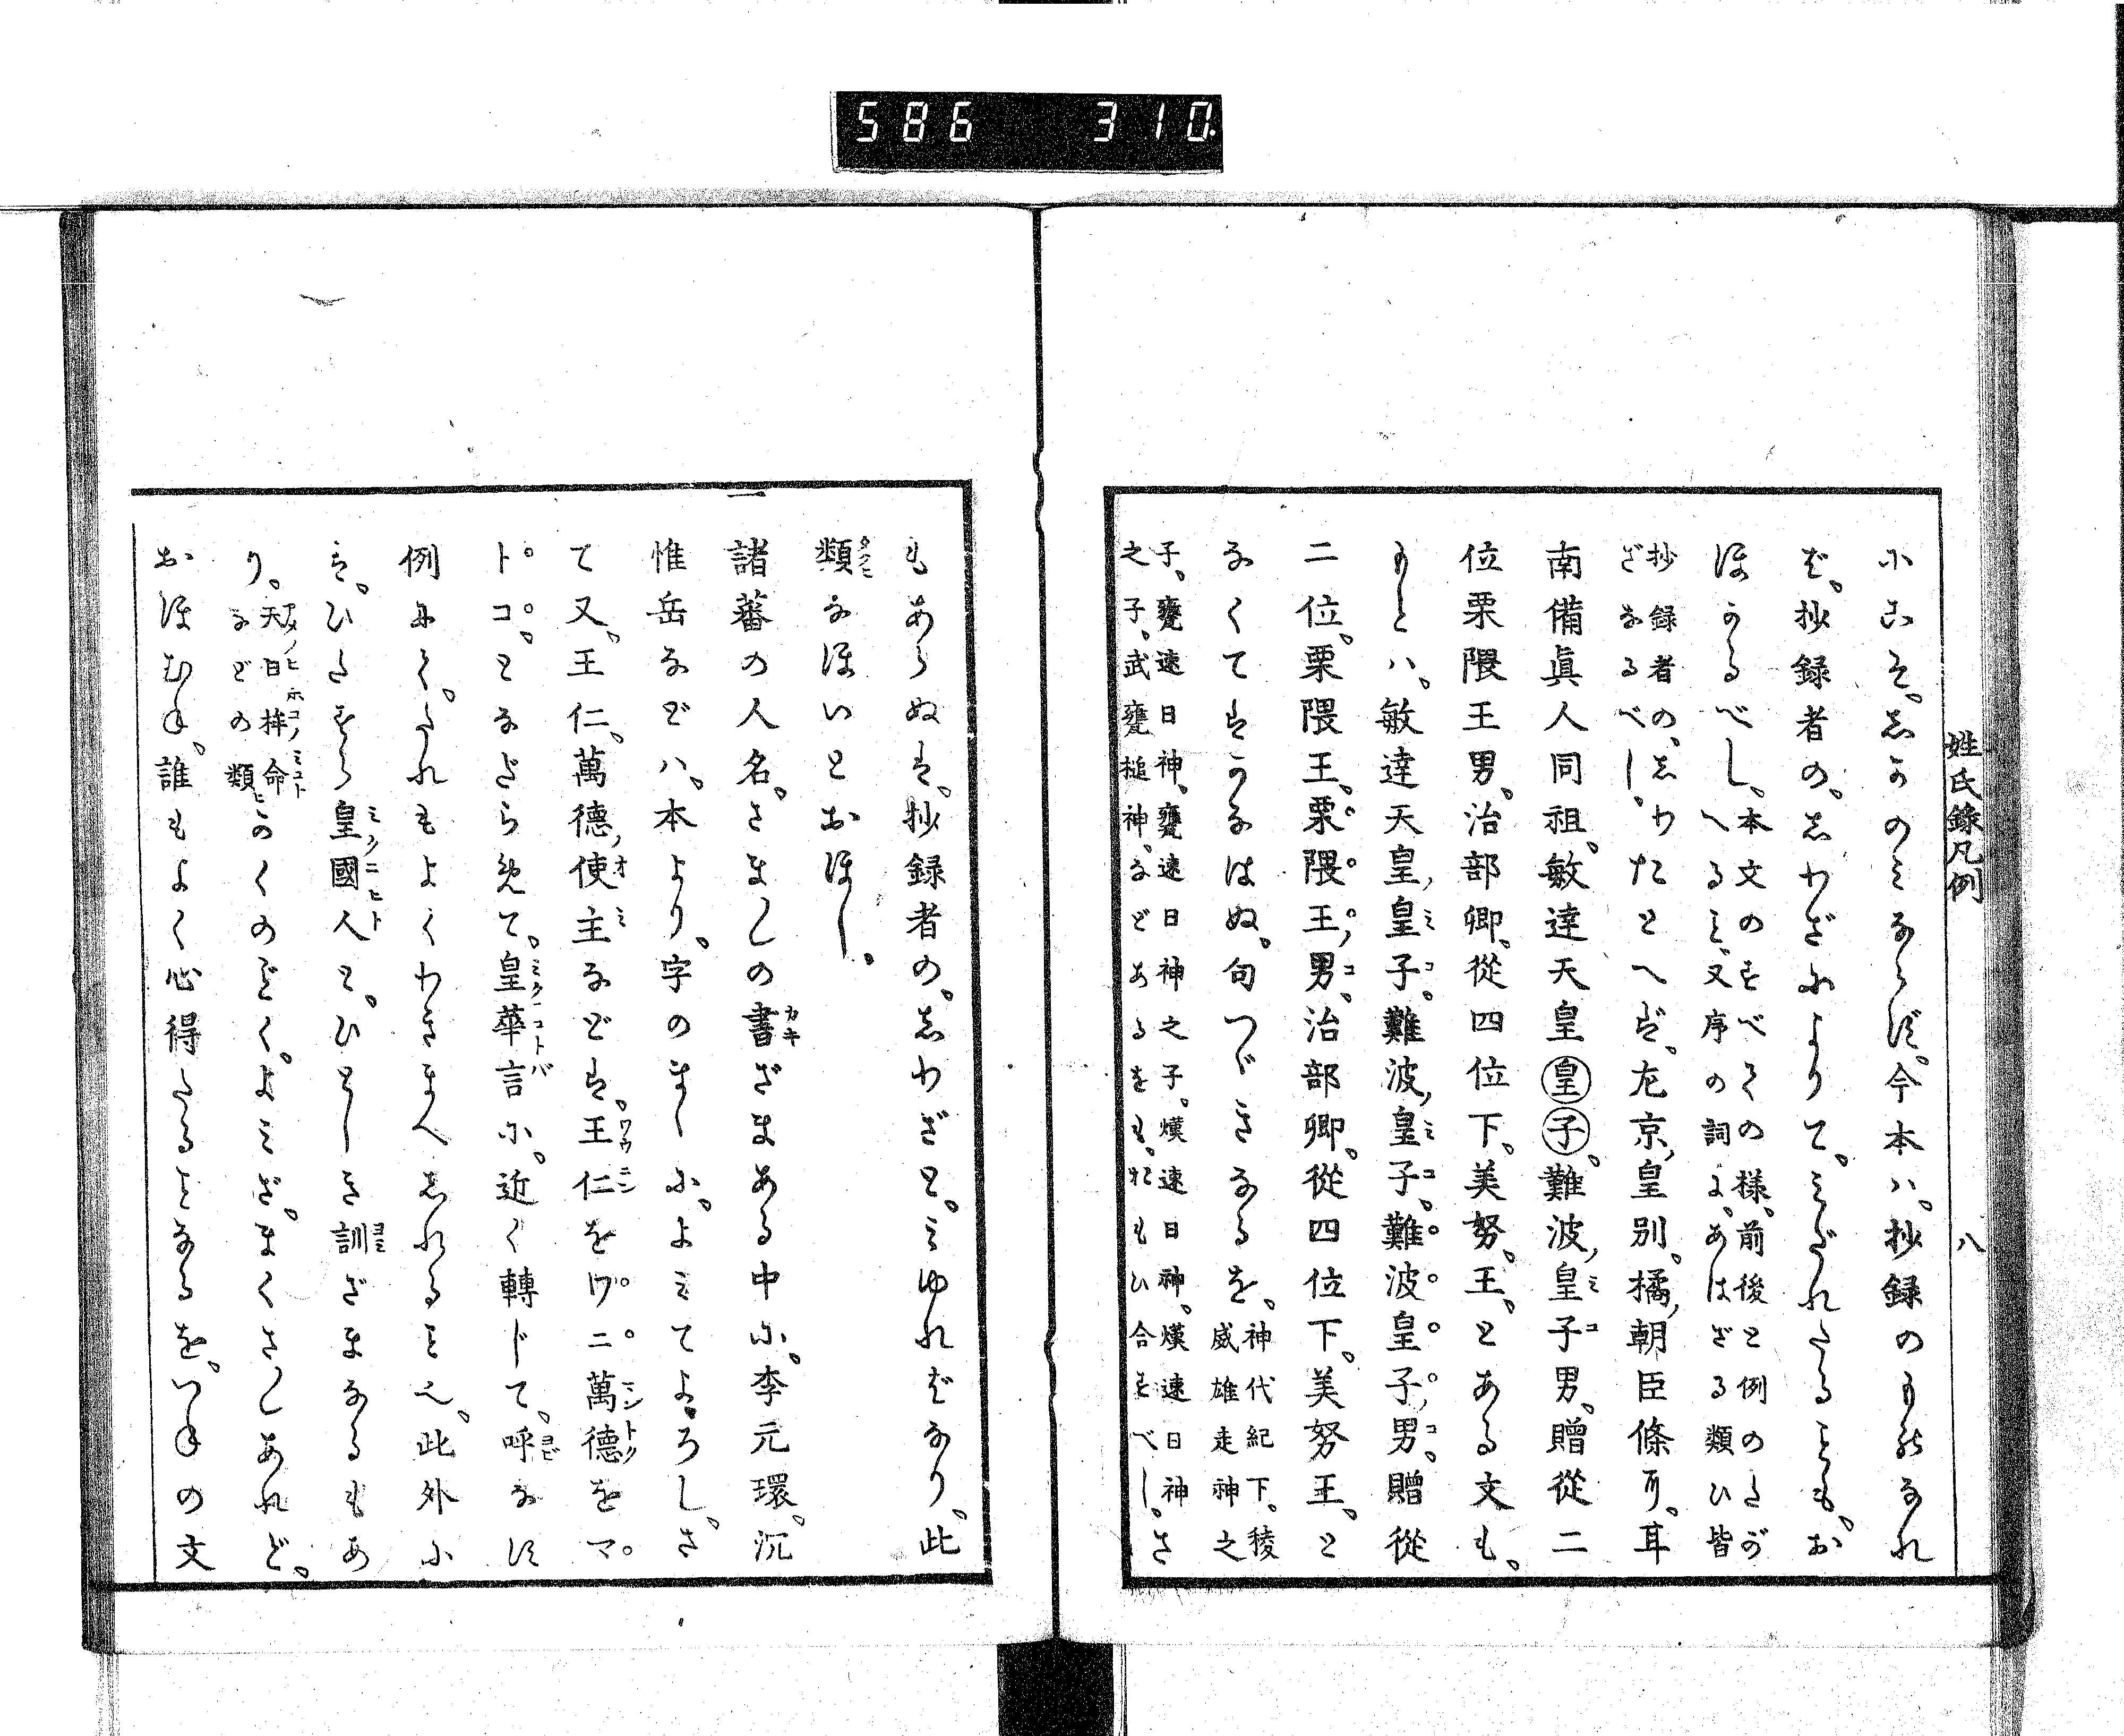 586 310
姓氏錄凡例 八
にこそ。志かのみならず。今本ハ。抄録のものなれ
ば。抄録者の。志わざによりて。みだれたることも。お
ほかるべし。本文のすべての様、前後と例のたが
へるミ、又序の詞に、あはざる類ひ皆
抄録者の、志わ
ざなるべし。わたとへば。左京、皇別。橘、朝臣條耳。
南備眞人同祖。敏達天皇皇子。難波、皇子男。贈從二
位栗隈王男。治部卿。從四位下。美努。王。とある文も。
もとハ。敏達天皇、皇子。難波、皇子。難波皇子、男。贈從
二位。栗隈王。栗隈王、男。治部卿。從四位下。美努王。と
なくてはかなはぬ。句つゞきなるを。神代紀下。稜
威雄走神之
子。甕速日神。甕速日神之子。熯速日神。熯速日神
之子。武甕槌神。などあるをも。おもひ合すべし。さ
もあらぬは。抄録者の。志わざと。みゆればなり。此
類なほいとおほし。
一諸蕃の人名。さましの書ざまある中に。李元環。沉
惟岳などハ。本より。字のまゝに。よミてよろし。さ
て又。王仁。萬德、使主などは。王仁をワニ萬德をマ
トコ。となだらめて。皇華言に。近く轉じて。呼なほ
例にて。これもよくわきまへ志れることへ。此外に
は。ひたすら皇國人と。ひとしき訓ざまなるもあ
り。天日桙命
などの類ミかくのごとく。よミざ。まくさしあれど。
おほむね。誰もよく心得たることなるを。つねの文